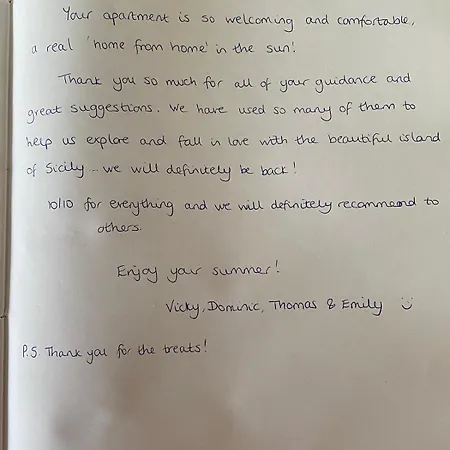 Your apartment is so welcoming and comfortable,
a real 'home from home' in the sun!
Thank you so much for all of your guidance and
great suggestions. We have used so many of them to
help us explore and fall in love with the beautiful island
of Sicily... we will definitely be back!
10/10 for everything and we will definitely recommend to
others.
Enjoy your summer!
Vicky, Dominic, Thomas & Emily
P.S. Thank you for the treats!